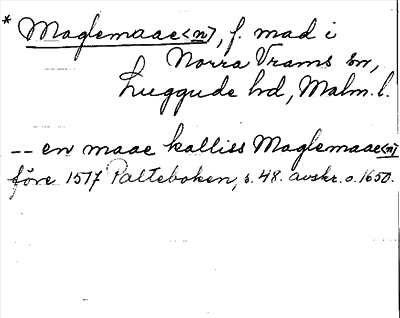 * Maglemaae<n>, f. mad i
Norra Vrams sn,
Luggude hd, Malm. l.
-- en maae kalliss Maglemaae<n>
före 1517 Palteboken, s. 48. avskr. o. 1650.